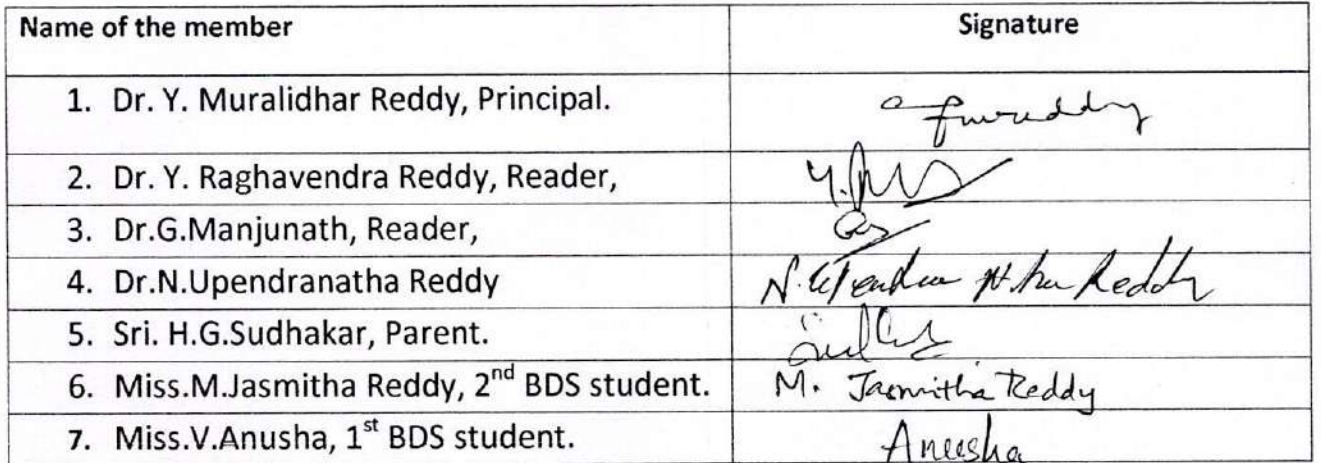 Name of the member Signature
1. Dr. Y. Muralidhar Reddy, Principal.
2. Dr. Y. Raghavendra Reddy, Reader,
3. Dr.G.Manjunath, Reader,
4. Dr.N.Upendranatha Reddy
5. Sri. H.G.Sudhakar, Parent.
6. Miss.M.Jasmitha Reddy, 2nd BDS student. M. Jasmitha Reddy
7. Miss.V.Anusha, 1st BDS student. Aneesha